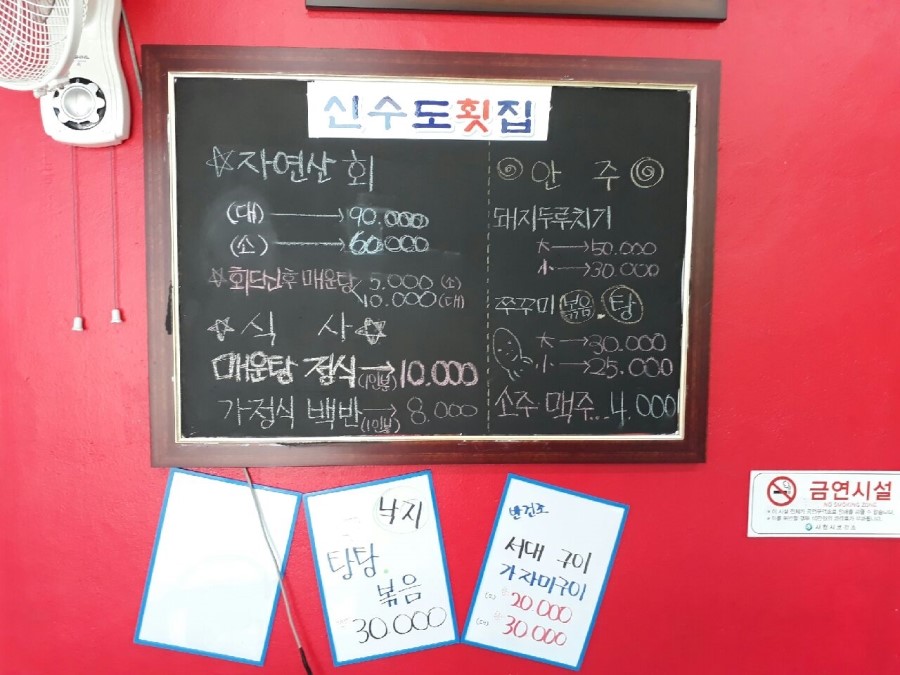 신수도횟집
☆자연산 회
(대) → 90.000
(소) → 60.000
☆회드신후 매운탕 5.000 (소)
10.000 (대)
☆식 사☆
매운탕 정식 →(1인분) 10.000
가정식 백반 →(1인분) 8.000
안 주
돼지두루치기
大 → 50.000
小 → 30.000
쭈꾸미 볶음.탕
大 → 30.000
小 → 25.000
소주·맥주... 4.000
낙지
탕탕.
볶음
30.000
반건조
서대 구이
가자미구이
(소) 20.000
(대) 30.000
금연시설
NO SMOKING ZONE